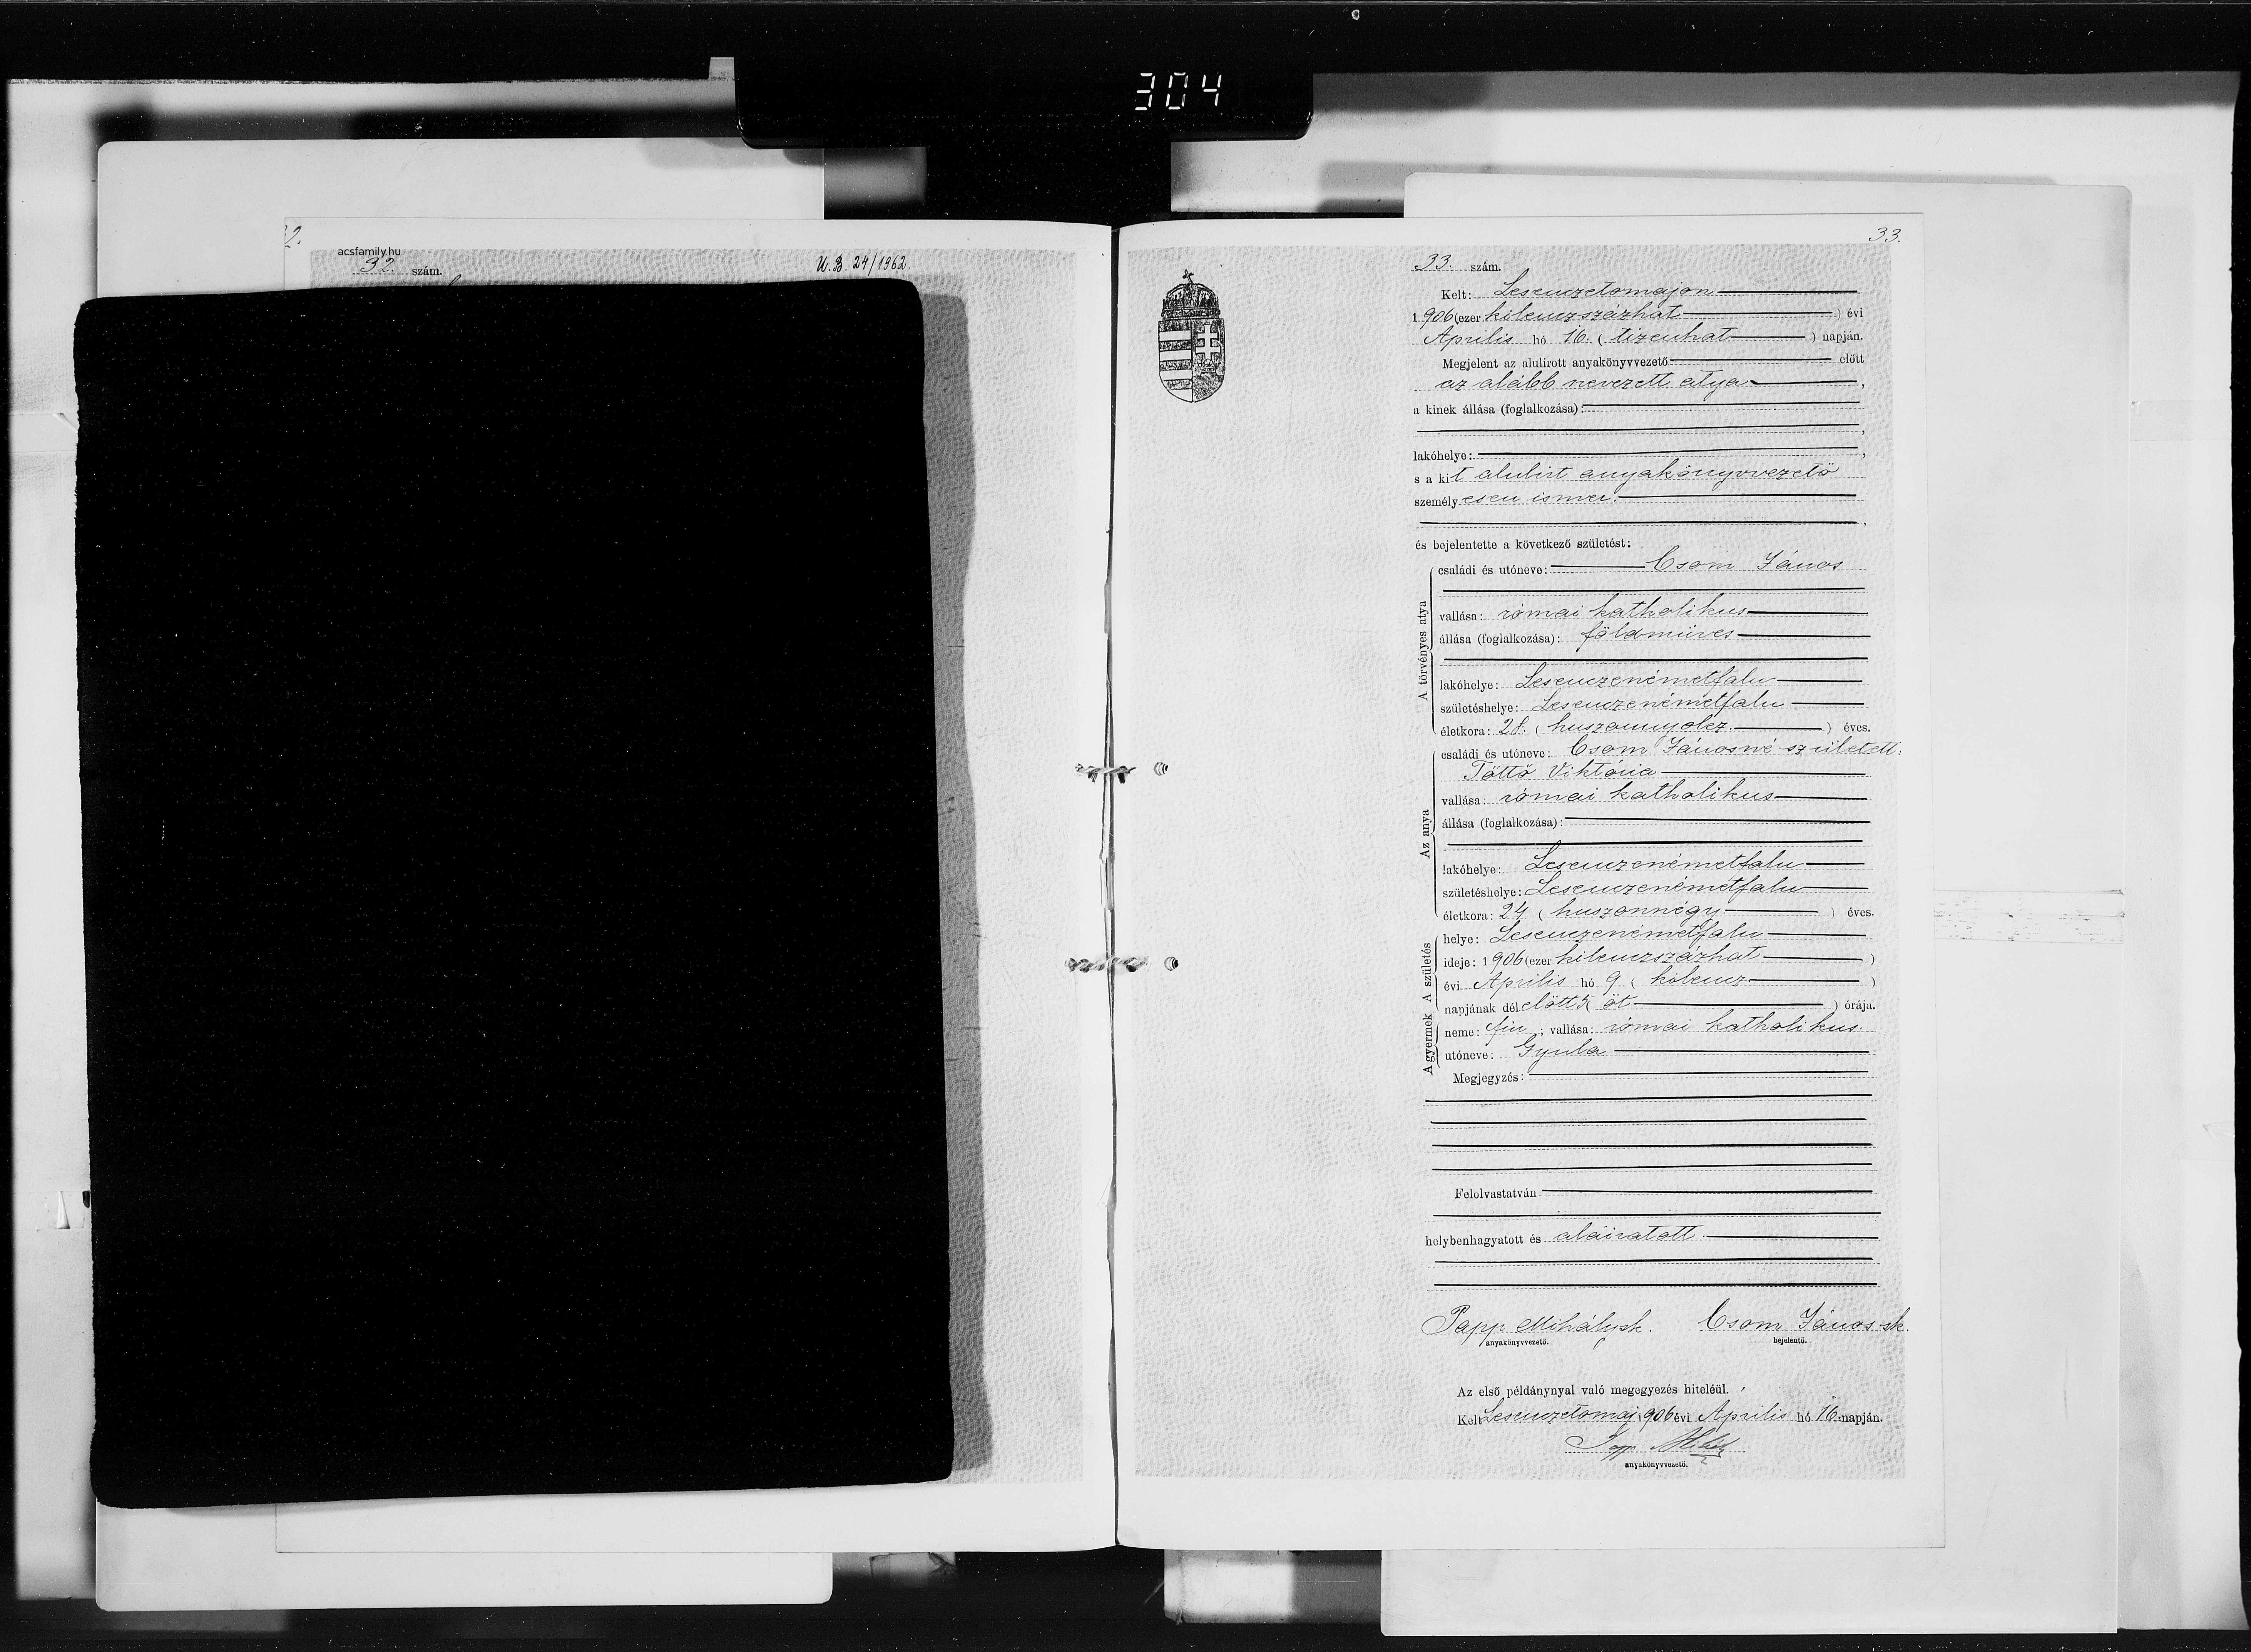 304
2.
acsfamily.hu
32. szám.
U.B. 24/1962
33.
33. szám.
Kelt: Lesenczetomajon
1906 (ezer kilenczszázhat) évi
Április hó 16. (tizenhat) napján.
Megjelent az alulirott anyakönyvvezető előtt
az alább nevezett atya,
a kinek állása (foglalkozása):
lakóhelye:
s a kit alulirt anyakönyvvezető
személyesen ismer.
és bejelentette a következő születést:
A törvényes atya
családi és utóneve: Csom János
vallása: római katholikus
állása (foglalkozása): földmüves
lakóhelye: Lesenczenémetfalu
születéshelye: Lesenczenémetfalu
életkora: 28. (huszonnyolcz) éves.
Az anya
családi és utóneve: Csom Jánosné született:
Töttő Viktória
vallása: római katholikus
állása (foglalkozása):
lakóhelye: Lesenczenémetfalu
születéshelye: Lesenczenémetfalu
életkora: 24 (huszonnégy) éves.
A születés
helye: Lesenczenémetfalu
ideje: 1906 (ezer kilenczszázhat)
évi Április hó 9. (kilencz)
napjának délelőtt 5 (öt) órája.
A gyermek
neme: fiu; vallása: római katholikus.
utóneve: Gyula
Megjegyzés:
Felolvastatván
helybenhagyatott és aláiratott.
Papp Mihály sk. Csom János sk.
anyakönyvvezető. bejelentő.
Az első példánynyal való megegyezés hiteléül.
Kelt Lesenczetomaj 1906 évi Április hó 16. napján.
Papp Mihály
anyakönyvvezető.